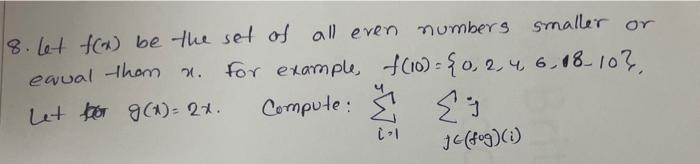 8. let f(x) be the set of all even numbers smaller or
equal than x. For example, f(10) = {0, 2, 4, 6, 8, 10}.
Let g(x) = 2x. Compute: 4 ∑ i=1 ∑ j j∈(fog)(i)